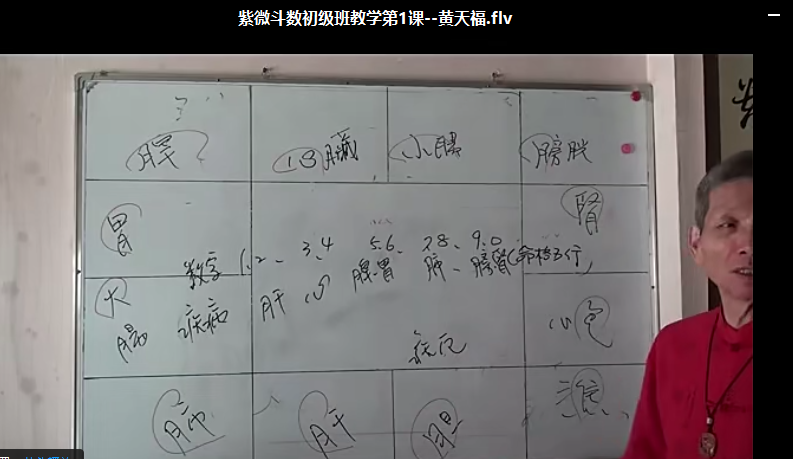 紫微斗数初级班教学第1课--黄天福.flv
脾 心臟 小腸 膀胱
胃 腎
数字 1.2、3.4 5.6、7.8、9.0
大腸 疾病 肝 心 脾胃 肺、膀腎(命格五行) 心包
肺 肝 胆 三焦